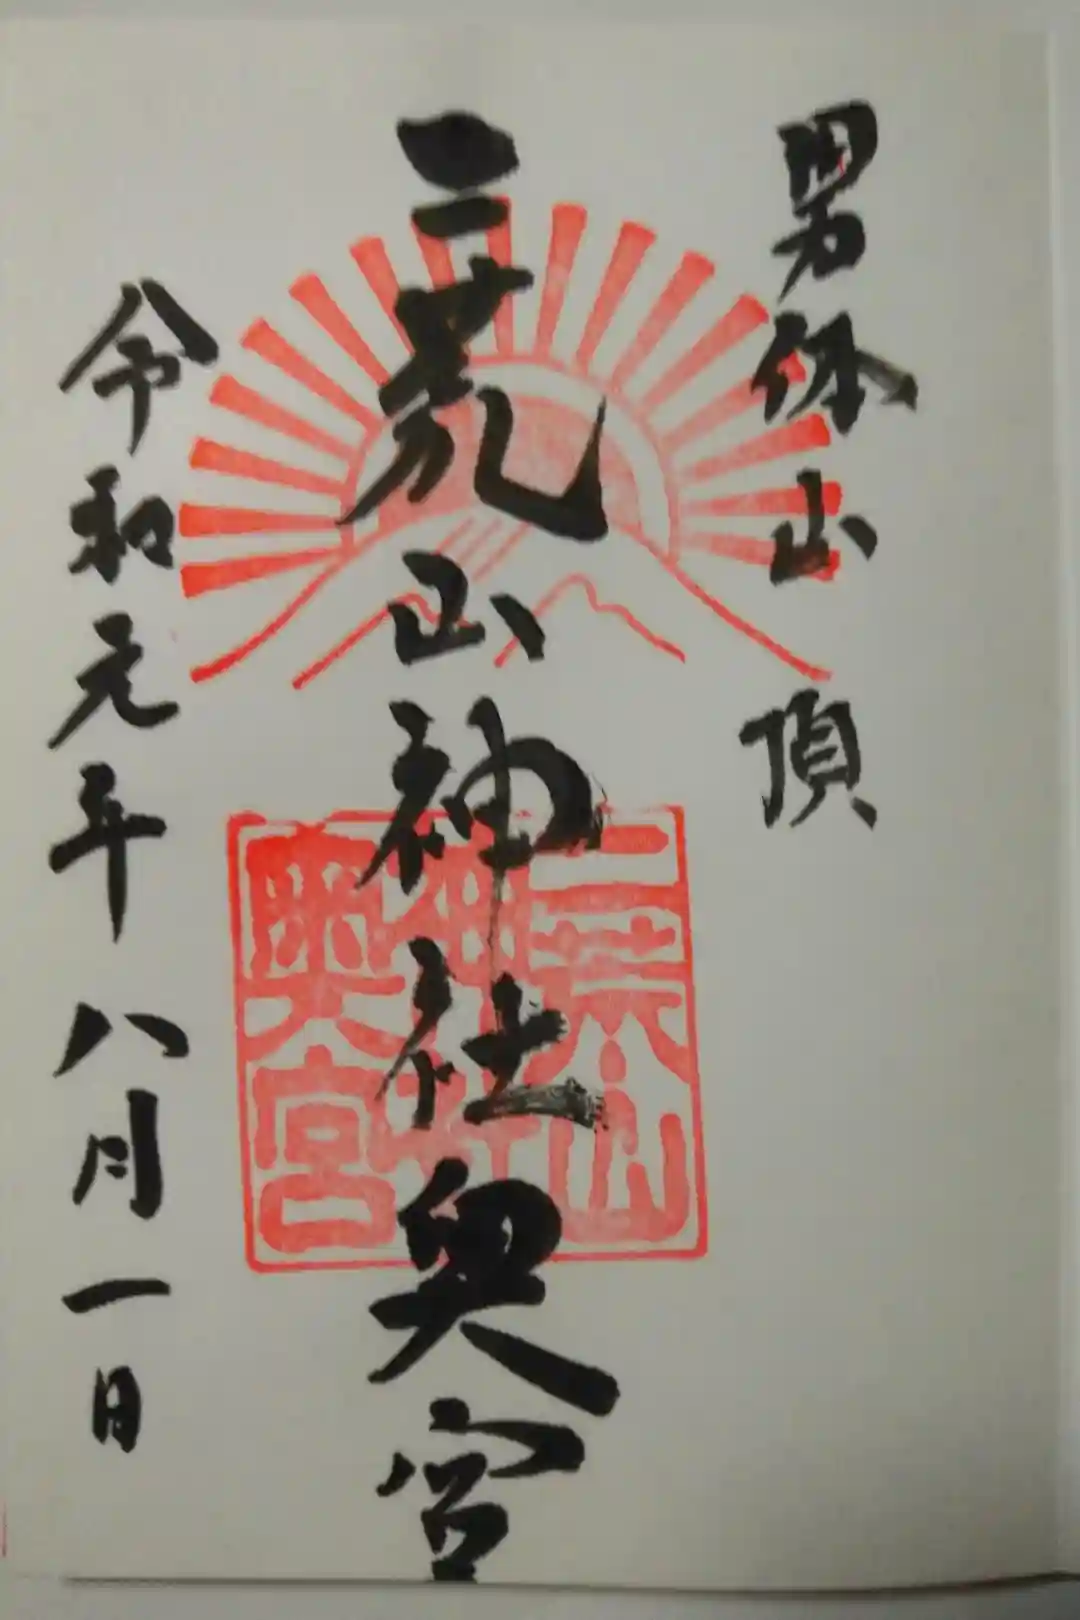 男体山
頂
二荒山神社奥宮
二荒山
神社
奥宮
令和元年八月一日